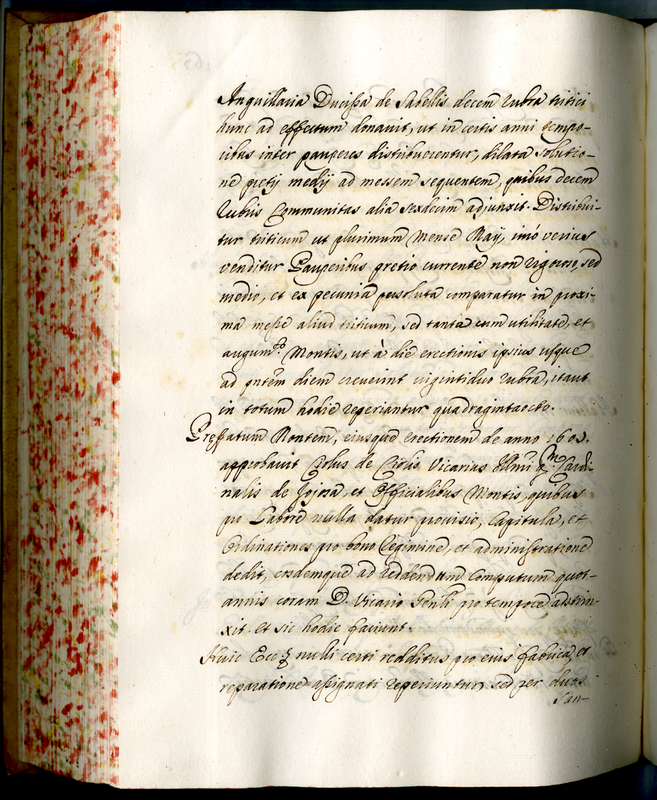 Anguillaria Ducissa de Sabellis decem rubra tritici
hunc ad effectum donavit, ut in certis anni tempo-
ribus inter pauperes distribuerentur, dilata solutio-
ne pretij medij ad messem sequentem, quibus decem
rubris Communitas alia sexdecim adjunxit. Distribui-
tur triticum ut plurimum mense Maij, imò verius
venditur Pauperibus pretio currente non rigoroso, sed
medio, et ex pecunia persoluta comparatur in proxi-
ma messe aliud triticum, sed tanta cum utilitate, et
augum.to Montis, ut à die erectionis ipsius usque
ad pntem diem creverint vigintiduo rubra, itaut
in totum hodie reperiantur quadragintaocto.
Præfatum Montem, eiusque erectionem de anno 1603.
approbavit Carolus de Carolis Vicarius Emi q.m Cardi
nalis de Joiosa, et Officialibus Montis, quibus
pro Labore nulla datur provisio, Capitula, et
Ordinationes pro bono Regimine, et administratione
dedit, eosdemque ad reddendum Computum quot-
annis coram D. Vicario Gnli pro tempore adstrin-
xit. et sic hodie faciunt.
Huic Ecc. nulli certi redditus pro eius fabrica, et
reparatione assignati reperiuntur, sed per duos
San-